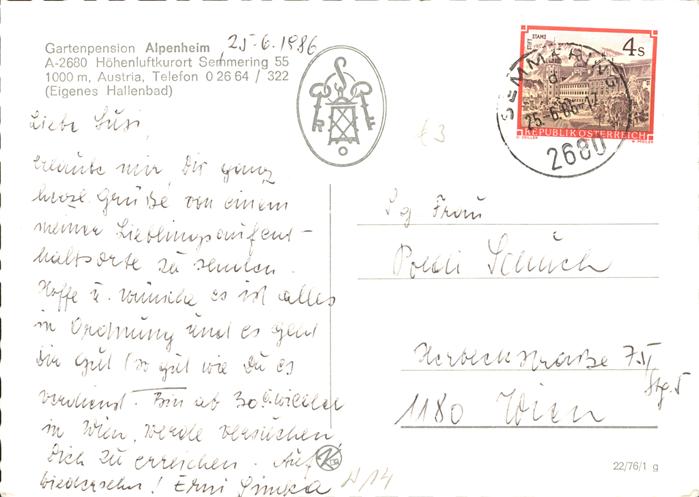 Gartenpension Alpenheim
A-2680 Höhenluftkurort Semmering 55
1000 m, Austria, Telefon 0 26 64 / 322
(Eigenes Hallenbad)
25.6.1986
STIFT STAMS
4 S
REPUBLIK ÖSTERREICH
SEMMERING
d
25.-6.86-17
2680
S
R
O
€3
Liebe Susi,
erlaube mir, Dir ganz
herzl. Grüße von einem
meiner Lieblingsaufent-
haltsorte zu senden.
Hoffe u. wünsche es ist alles
in Ordnung und es geht
Dir gut (so gut wie Du es
verdienst. Bin ab 30.6. wieder
in Wien, werde versuchen
Dich zu erreichen. Auf
Wiedersehn! Erni
Sg Frau
Poldi Schüch
Herbeckstraße 75/
Stg. 5
1180 Wien
A/14
22/76/1 g